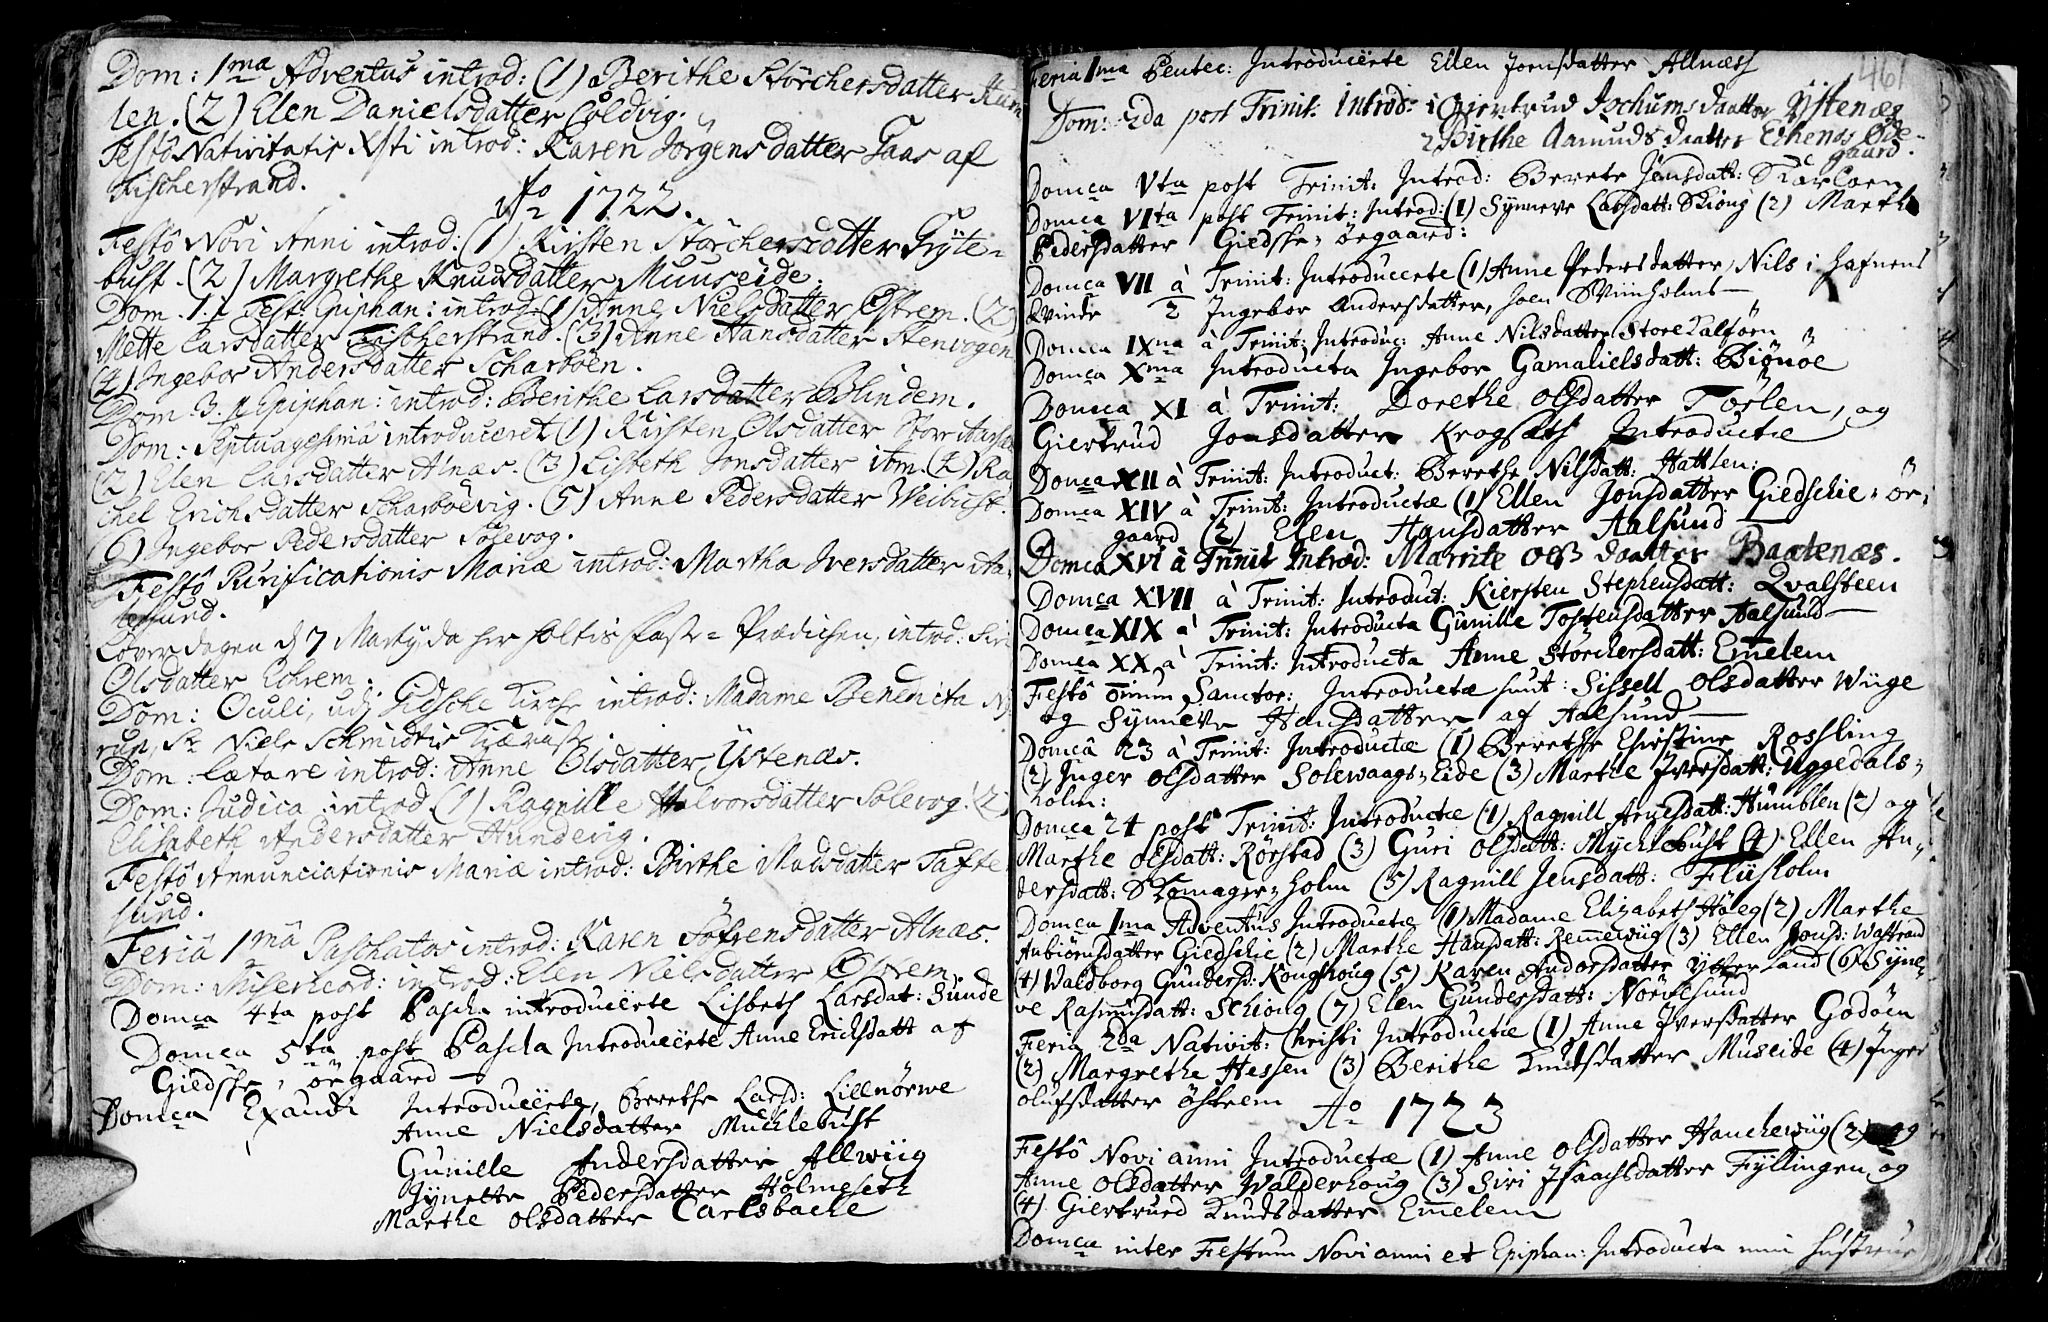 Dom: 1ma Adventus introd: (1) Berithe Störchersdatter Hum
len. (2) Elen Danielsdatter Coldvig.
Festô Nativitatis Xsti introd: Karen Jörgensdatter Taas af
Fischerstrand.
Ao 1722.
Festô Novi Anni introd: (1) Kirsten Störchersdatter Gÿte-
bust. (2) Margrethe Knudsdatter Muuseide.
Dom. 1. p Fest: Epiphan: introd: (1) Anne Nielsdatter Østrem. (2)
Mette Larsdatter Fischerstrand. (3) Anne Hansdatter Stenvogen
(4) Ingebor Andersdatter Scharböen.
Dom 3. p Epiphan: introd: Berithe Larsdatter Blindem.
Dom: Septuagesimâ introduceret (1) Kirsten Olsdatter Store
(2) Elen Larsdatter Alnæs. (3) Lisbeth Jonsdatter ibm. (4) Ra
chel Erichsdatter Scharböevig. (5) Anne Pedersdatter Weibust.
(6) Ingebor Pedersdatter Solevog.
Festô Purificationis Mariæ introd: Martha Iversdatter Aa
lesund.
Löverdagen d 7 Martÿ da her holtis Faste-Prædichen, introd: Siri
Olsdatter Echrem.
Dom: Oculi, udj Gidsche Kirche introd: Madame Benedicta
rup, Sr Niels Schmidtis Kiæreste.
Dom: Lætare introd: Anne Olsdatter Ÿstenæs.
Dom: Judica introd (1) Ragnille Halvorsdatter Solevog. (2)
Elisabeth Andersdatter Hundevig.
Festô Annunciationis Mariæ introd: Birthe Madsdatter Tafte
sund.
Feriâ 1mâ Paschatos introd: Karen Jöfrensdatter Alnæs.
Dom: Miserieord: introd: Elen Nielsdatter Østrem.
Domca 4ta post Pascha introduceërte Lisbeth Larsdat: Sunde
Domca 5ta post Pascha Introduceërte Anne Erichsdatt af
Giedske-öegaard
Domca Exaudi Introduceërte, Berethe Larsd: Lillnörwe
Anne Nielsdatter Mucklebust
Gunille Andersdatter Allwiig
Synette Pedersdatter Holmeseth
Marthe Olsdatter Carlsbacke
461
Feria 1ma Pentec: Introduceërte Ellen Joensdatter Allnæss
Dom: 2da post Trinit: Introd: 1 Giertrud Jochumsdaatter Ÿstenæs
2 Birthe Aamunds daatter Ekenæs Øde-
gaard.
Domca Vta post Trinit: Introd: Berete Jönsdatt: Skarboen
Domca VIta post Trinit: Introd: (1) Sÿnneve Larsdatt: Skiong (2) Marthe
Pedersdatter Giedske-öegaard:
Domca VII à Trinit: Introduceerte (1) Anne Pedersdatter, Nils i Hafnens
Kvinde 2 Ingebor Andersdatter, Joen Sviinholms
Domca IXna à Trinit: Introduc: Anne Nilsdatter Store Kalföen
Domca Xma Introducta Ingebor Gamalielsdatt: Biönöe
Domca XI à Trinit: Dorethe Olsdatter Törlen, og
Giertrud Jonsdatter Krogsæth Introductæ
Domca XII à Trinit: Introduct: Berethe Nilsdatt: Hattlen:
Domca XIV à Trinit: Introductæ (1) Ellen Jonsdatter Giedschie-ör-
gaard (2) Elen Hansdatter Aalsund
Domca XVI à Trinit Introd: Marrite Olss daatter Baatenæs.
Domca XVII à Trinit: Introduct: Kiersten Stephensdatt: Qvalsteen
Domca XIX à Trinit: Introducta Gunille Tostensdatter Aalsund
Domca XX à Trinit: Introducta Anne Störchersdatt: Emelem
Festô omium Sanctor: Introductæ sunt: Sissell Olsdatter Wiige
og Sÿnneve Hansdatter af Aalsund
Domcâ 23 à Trinit: Introductæ (1) Berethe Christine Rossling
(2) Inger Olsdatter Solewaags-Eide (3) Marthe Iversdatt: Uggedals-
holm:
Domca 24 post Trinit: Introductæ (1) Ragnill Arnesdatt: Humblen (2) og
Marthe Olsdatt: Rörstad (3) Guri Olsdatt: Mychlebust (4) Ellen An-
dersdatt: Skomager-holm (5) Ragnill Jensdatt: Flisholm
Domca 1ma Adventus Introductæ (1) Madame Elizabeth Höeg (2) Marthe
Anbiörnsdatter Giedschie (2) Marthe Hansdatt: Remmewiig (3) Ellen Jonsd: Wastrand
(4) Waldborg Gundersd: Kongshoug (5) Karen Andersdatter Ytterland (6) Synne-
ve Rasmusdatt: Schiong (7) Elen Gundersdatt: Nörvesund
Feria 2da Nativit: Christi Introductæ (1) Anne Iversdatter Godöen
(2) Margrethe Hessen (3) Berithe Knudsdatter Museide (4) Inger
Olufsdatter Östrem
Ao 1723
Festô Novi anni Introductæ (1) Anne Olsdatter Hanchewiig (2) og
Anne Olsdatter Walderhoug (3) Siri Isaachsdatter Fÿllingen og
(4) Giertrued Knudsdatter Emelem
Domca inter Festum Novi anni et Epiphan: Introducta min Hustrue